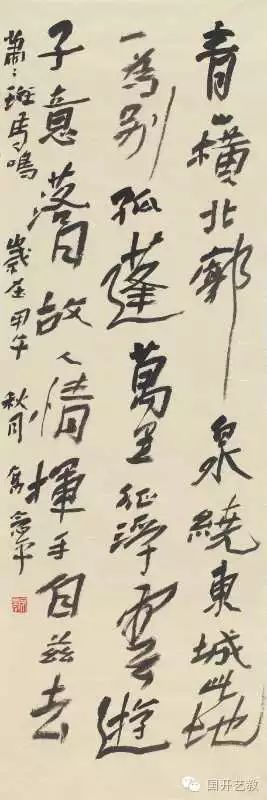 青山橫北郭白水繞東城此地
一為別孤蓬萬里征浮雲遊
子意落日故人情揮手自茲去
蕭々班馬鳴 歲在甲午 秋月
国开艺教